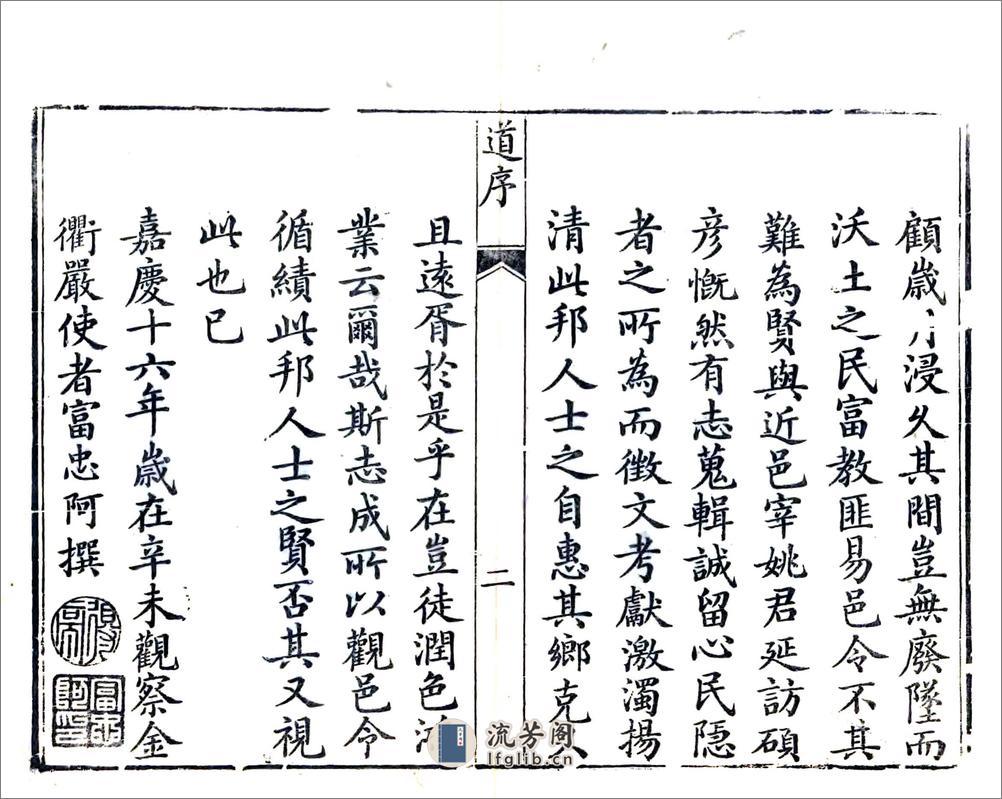 顧歲月浸久其間豈無廢墜而
沃土之民富教匪易邑令不其
難為賢與近邑宰姚君延訪碩
彥慨然有志蒐輯誠留心民隱
者之所為而徵文考獻激濁揚
清此邦人士之自惠其鄉克久
道序
二
且遠胥於是乎在豈徒潤色
業云爾哉斯志成所以觀邑令
循績此邦人士之賢否其又視
此也已
嘉慶十六年歲在辛未觀察金
衢嚴使者富忠阿撰
流芳阁
lfglib.cn